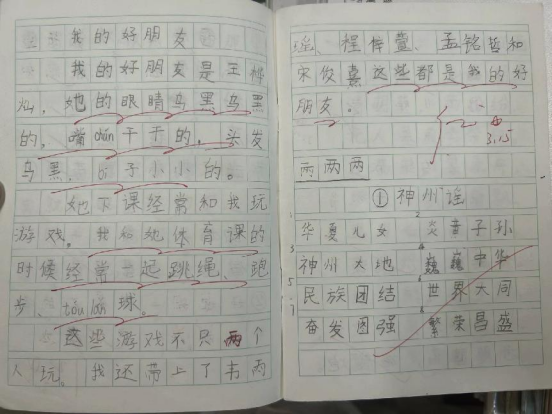 我的好朋友
我的好朋友是王烨
灿,她的眼睛乌黑乌黑
的,嘴chún干干的,头发
乌黑,bí子小小的。
她下课经常和我玩
游戏。我和她体育课的
时候经常一起跳绳、跑
步、tóu lán球。
这些游戏不只两个
人玩。我还带上了韦雨
瑶、程梓萱、孟铭哲和
宋俊熹这些都是我的好
朋友。
3.15
两两两
①神州谣
华夏儿女 炎黄子孙
神州大地 巍巍中华
民族团结 世界大同
奋发图强 繁荣昌盛